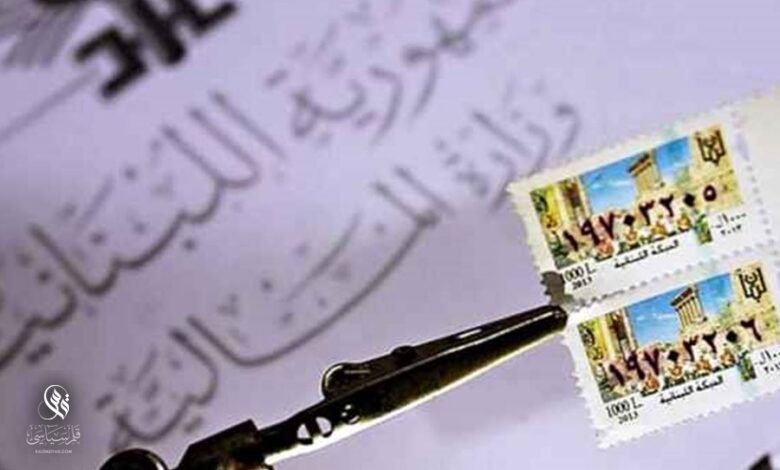 الجمهورية اللبنانية
وزارة المالية
١٩٧٠٣٢٠٥
١٠٠٠ ل.ل
٢٠١٣
اللبنانية
1000 L.
2013
١٩٧٠٣٢٠٦
اللبنانية
1000 L.
2013
قلم سياسي